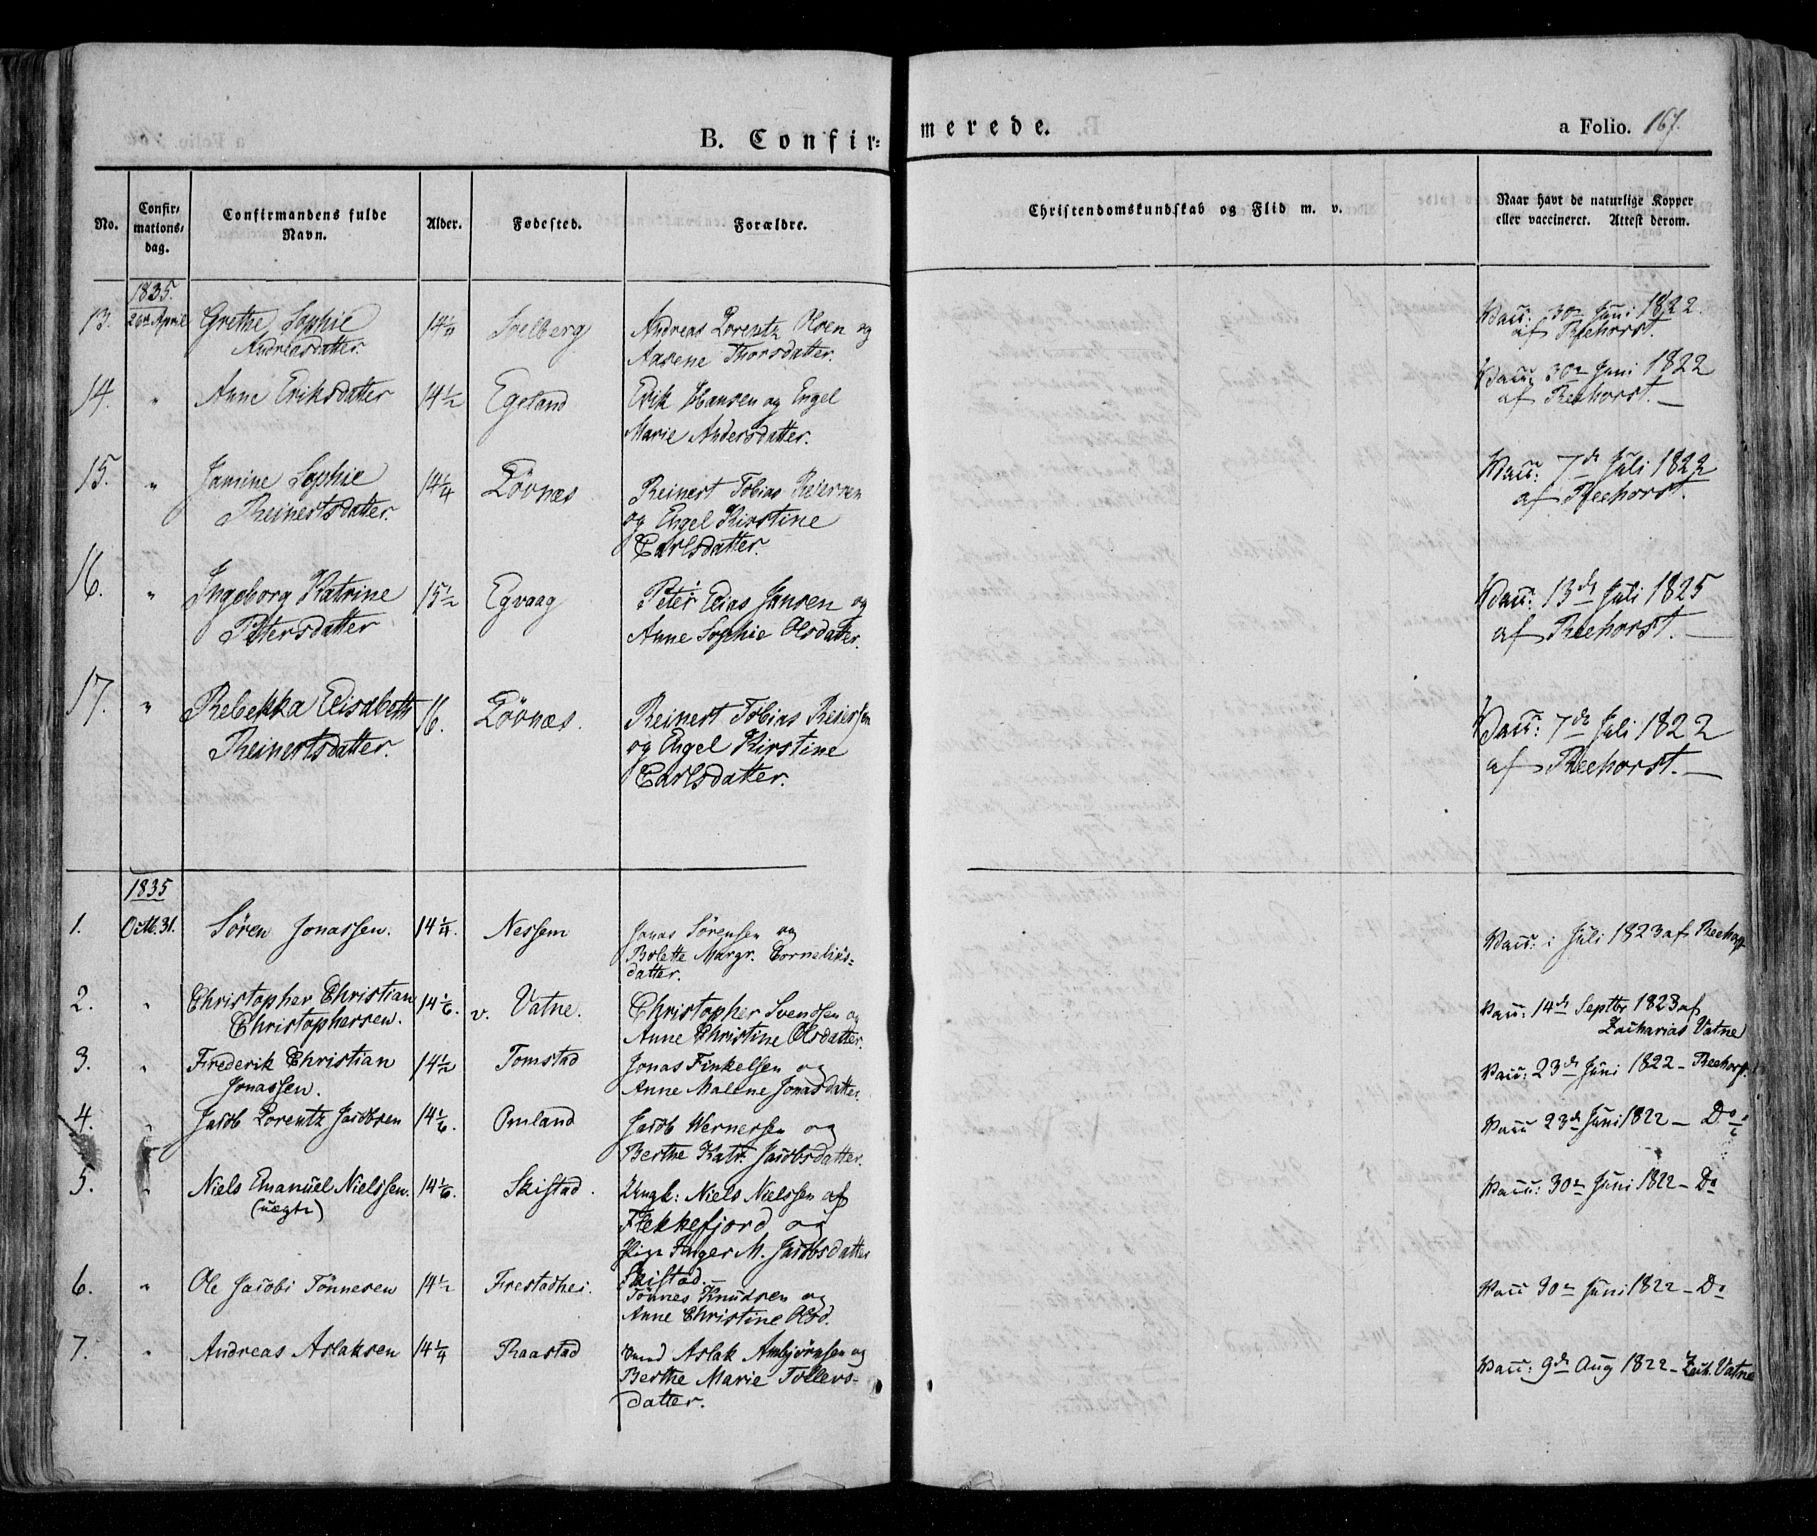 B. Confirmerede.
a Folio. 167.
No.
Confirmations-dag.
Confirmandens fulde Navn.
Alder.
Fødested.
Forældre.
Christendomskundskab og Flid m. v.
Naar havt de naturlige Kopper
eller vaccineret. Attest derom.
1835.
13. 26de April Grethe Sophie 14 1/4 Andreas Lorentz Olsen og Vacc: 30te Juni 1822
Andreasdatter. Aasene Thorsdatter. af Reehorst.
14. " Anne Eriksdatter 14 1/2 Egeland Erik Hansen og Engel Vacc: 30te Juni 1822
Marie Andersdatter. af Reehorst. —
15. " Jamine Sophie 14 1/4 Løvnæs Reinert Tobias Reiersen Vacc: 7de Juli 1822
Reinertsdatter. og Engel Kirstine af Reehorst.
Carlsdatter.
16. " Ingeborg Katrine 15 1/2 Egvaag Peter Elias Jansen og Vacc: 13de Juli 1825
Petersdatter Anne Sophie Olsdatter. af Reehorst. —
17. " Rebekka Elisabeth 16. Løvnæs. Reinert Tobias Reiersen Vacc: 7de Juli 1822
Reinertsdatter. og Engel Kirstine af Reehorst. —
Carlsdatter.
1835
1. Octb. 31. Søren Jonassen. 14 1/4. Nessem Jonas Sørensen og Vacc: i Juli 1823 af
Bolette Margr. Cornelius-
datter.
2. " Christopher Christian 14 1/6. v. Vatne. Christopher Svendsen og Vacc: 14de Septbr 1823 af
Christophersen. Anne Christine Olsdatter. Zacharias Vatne
3. " Frederik Christian 14 1/2 Tomstad Jonas Finkelsen og Vacc: 23de Juni 1822 - Reehorst
Jonassen. Anne Malene Jonasdatter.
4. " Jacob Lorentz Jacobsen 14 1/6. Omland Jacob Wernersen og Vacc 23de Juni 1822 - Do
Berthe Katr. Jacobsdatter.
5. " Niels Emanuel Nielssen. 14 1/6. Skistad. Ungk: Niels Nielssen af Vacc: 30te Juni 1822 - Do
(uægte) Flekkefjord og
Pige Inger M. Jacobsdatter
Skistad.
6. " Ole Jacobi Tønnesen 14 1/2 Frestadhei. Tønnes Knudsen og Vacc 30te Juni 1822 - Do
Anne Christine Olsd.
7. " Andreas Aslaksen 14 1/4 Raastad Aslak Anbjørnsen og Vacc: 9de Aug 1822 - Zach. Vatne
Berthe Marie Tollevs-
datter.